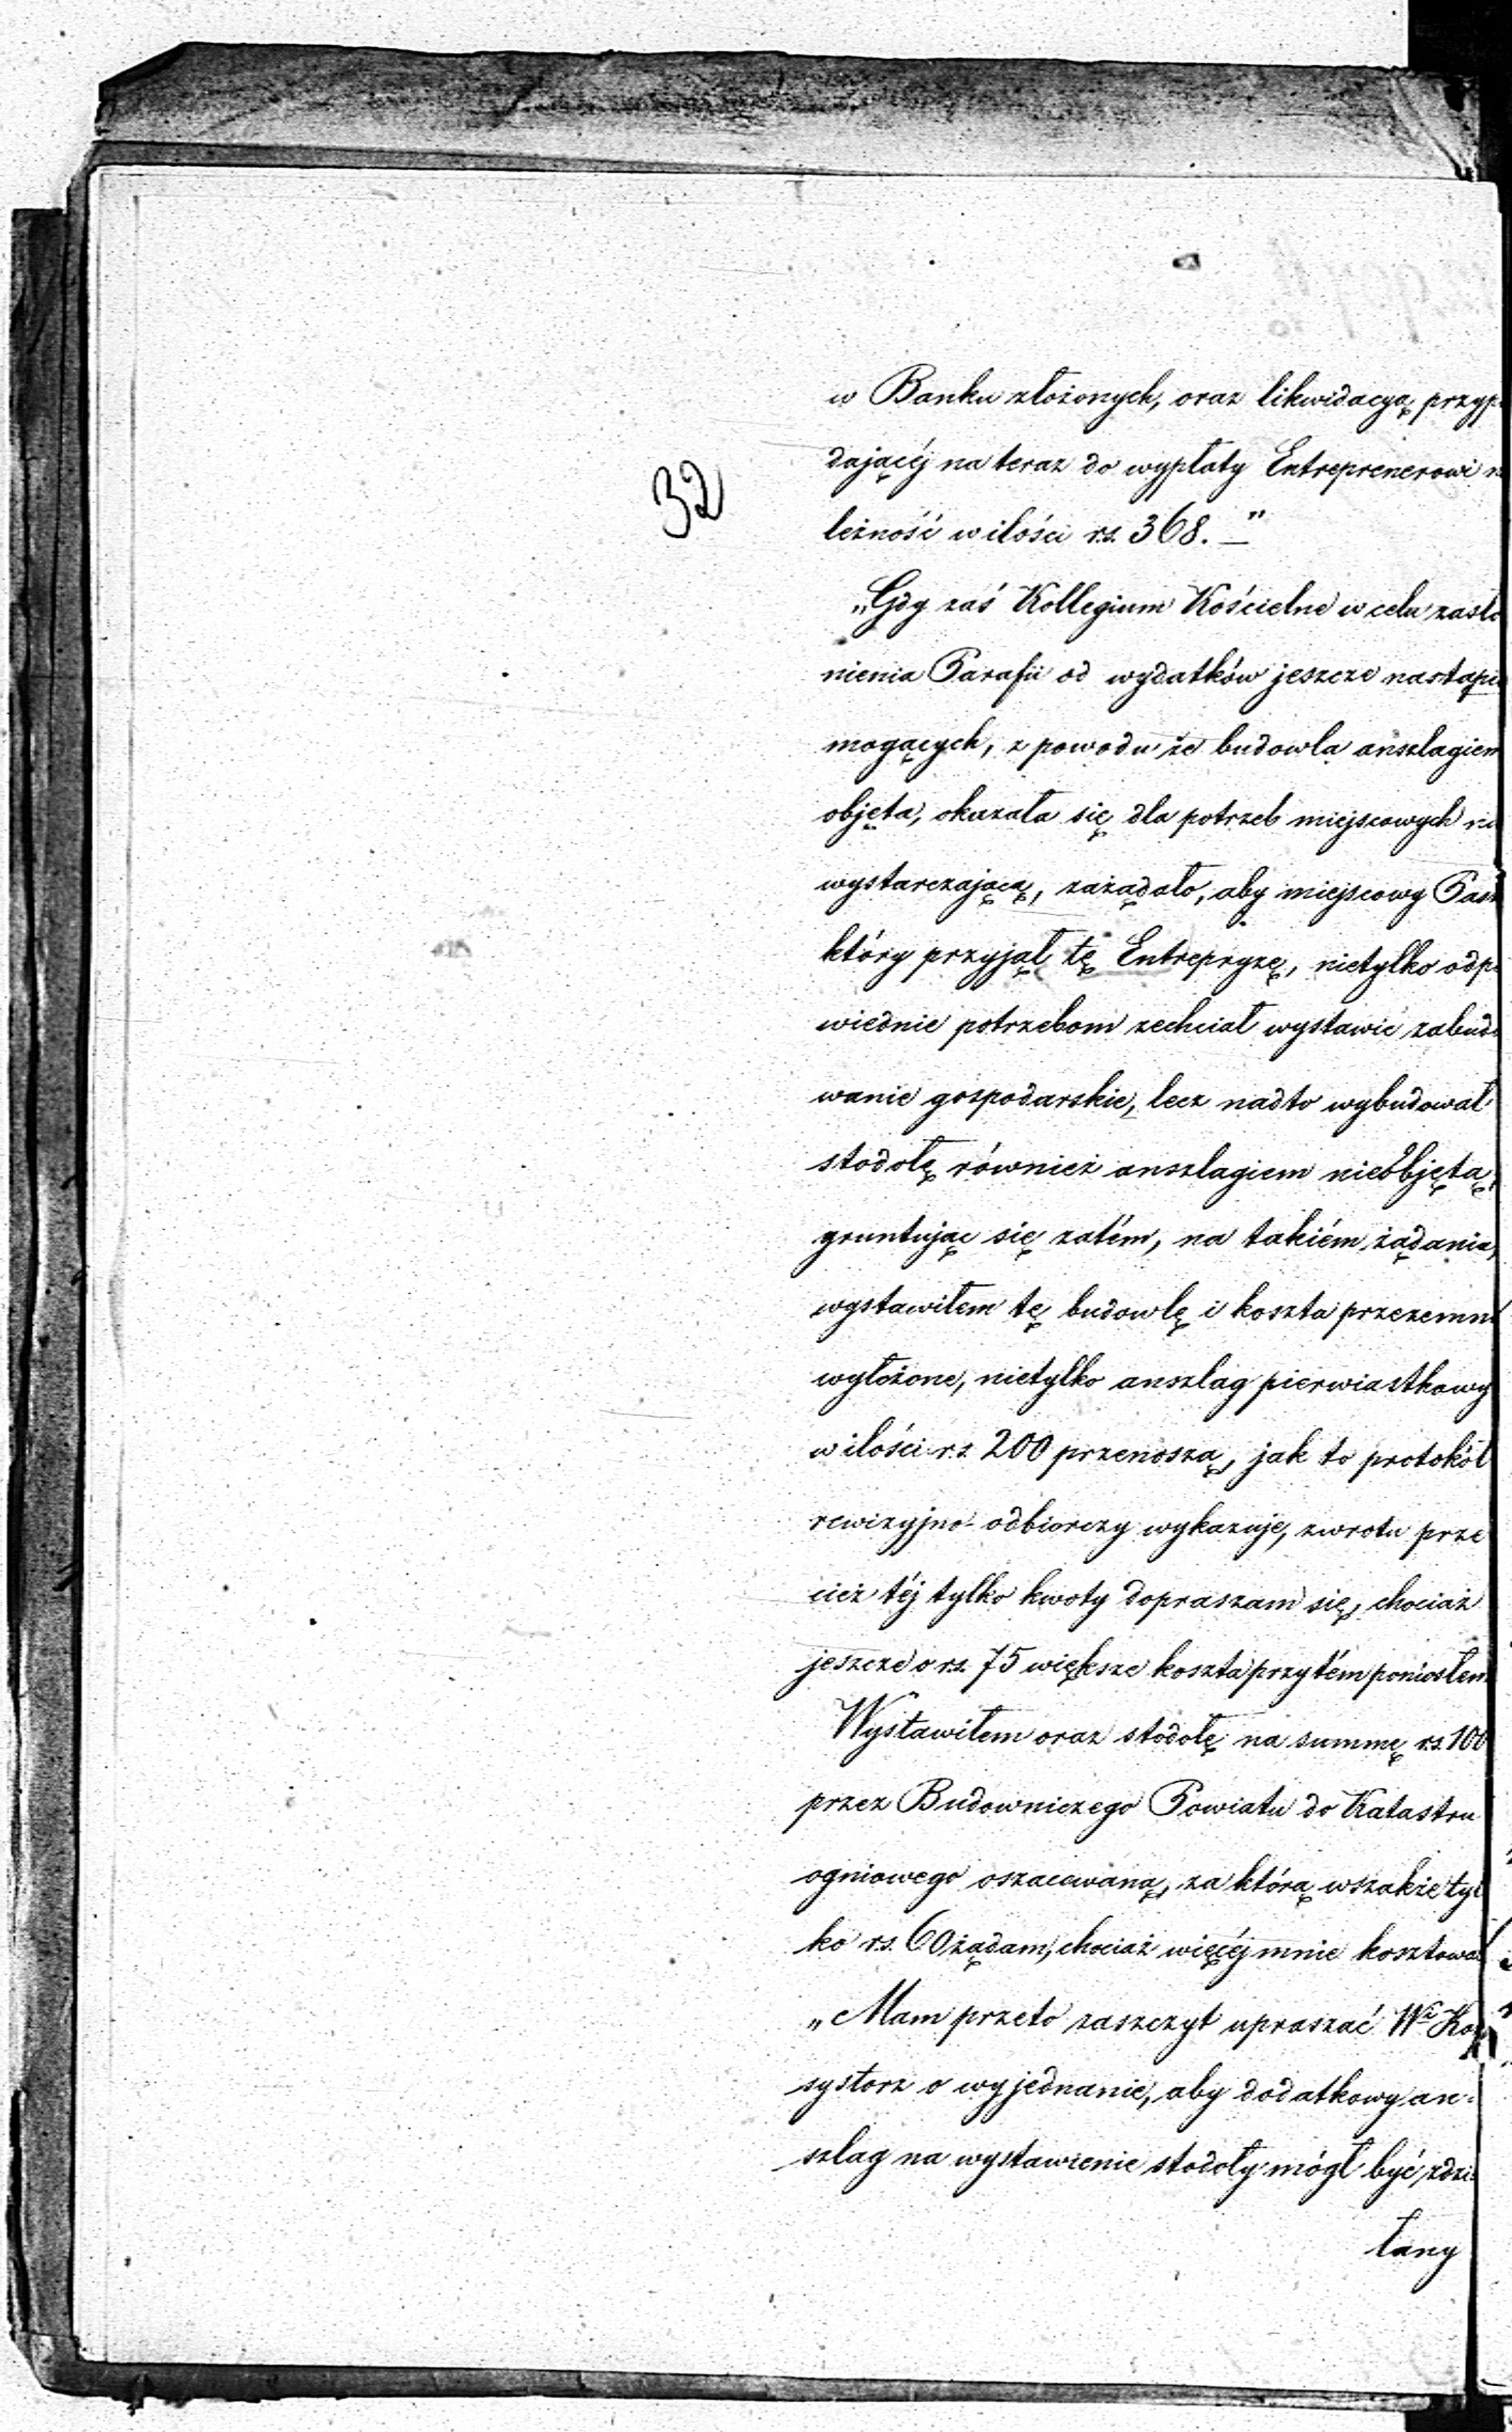 32
w Banku złożonych, oraz likwidacyą przyp
dającéj na teraz do wypłaty Entreprenerowi n
leżność w ilości rs. 368. —"
„Gdy zaś Kollegium Kościelne w celu zasło
nienia Parafii od wydatków jeszcze nastąpi
mogących, z powodu że budowla anszlagiem
objęta, okazała się dla potrzeb miejscowych nie
wystarczającą, zażądało, aby miejscowy Past
który przyjął tę Entrepryzę, nietylko odpo
wiednie potrzebom zechciał wystawić zabudo
wanie gospodarskie, lecz nadto wybudował
stodołę również anszlagiem nieobjętą,
gruntując się zatém, na takiém żądania,
wystawiłem tę budowlę i koszta przezemni
wyłożone, nietylko anszlag pierwiastkowy
w ilości rs. 200 przenoszą, jak to protokół
rewizyjno-odbiorczy wykazuje, zwrotu prze
cież téj tylko kwoty dopraszam się, chociaż
jeszcze o rs. 75 większe koszta przytém poniosłem
Wystawiłem oraz stodołę na summę rs. 100
przez Budowniczego Powiatu do Katastru
ogniowego oszacowaną, za którą wszakże tyl
ko rs. 60 żądam, chociaż więcéj mnie kosztował
„Mam przeto zaszczyt upraszać Wi Kon
systorz o wyjednanie, aby dodatkowy an-
szlag na wystawienie stodoły mógł być zdzia
łany